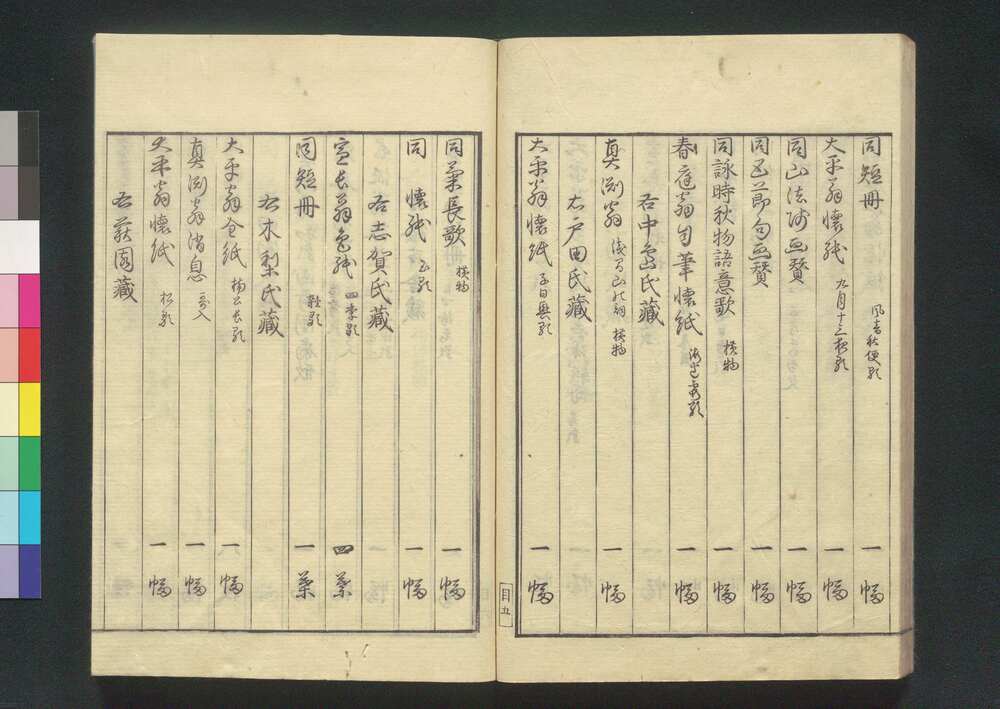 同短冊 一幅
大平翁懐紙 九月十三夜題 一幅
同山法師画賛 一幅
同五節句画賛 一幅
同詠時秋物語意歌 横物 一幅
春庭翁自筆懐紙 一幅
右中島氏蔵
真淵翁 横物 一幅
右戸田氏蔵
大平翁懐紙 子日興題 一幅
目五
同菓長歌 横物 一幅
同懐紙 一幅
右志賀氏蔵
宣長翁色紙 四季題 四葉
同短冊 雑題 一葉
右木梨氏蔵
大平翁全紙 一幅
真淵翁消息 一幅
大平翁懐紙 松題 一幅
右萩園蔵